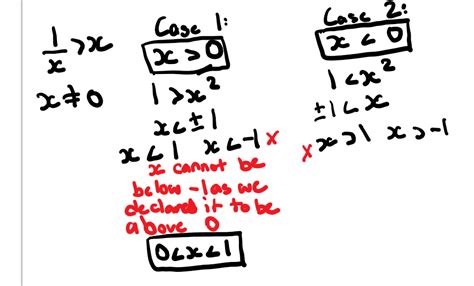 1/x > x
x ≠ 0
Case 1:
x > 0
1 > x²
x < ±1
x < 1 x < -1 x
x cannot be
below -1 as we
declared it to be
above 0
0 < x < 1
Case 2:
x < 0
1 < x²
±1 < x
x x > 1 x > -1